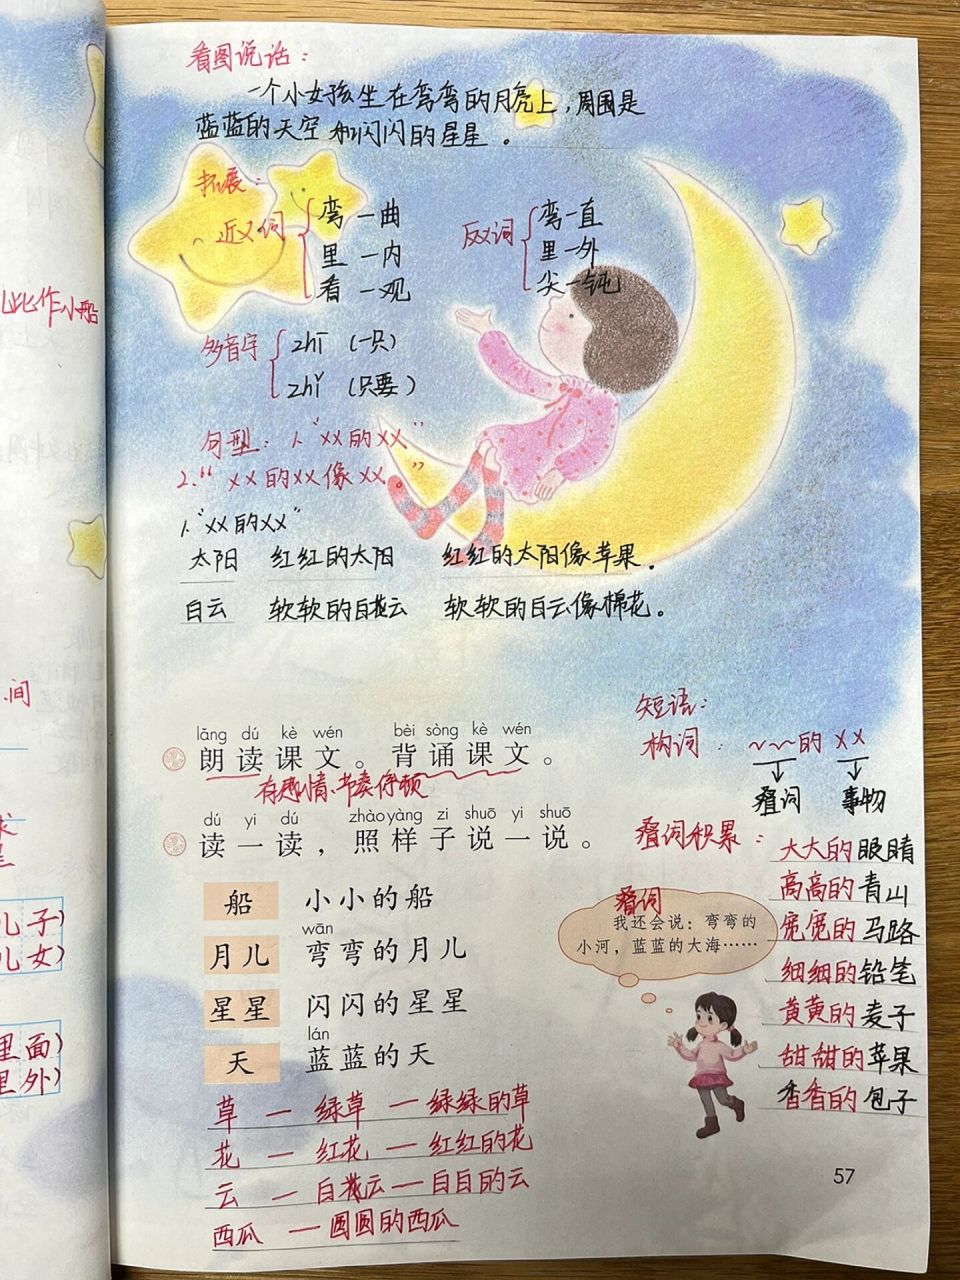 看图说话：
一个小女孩坐在弯弯的月亮上，周围是
蓝蓝的天空和闪闪的星星。
拓展：
近义词
弯一曲
里一内
看一观
反义词
弯一直
里一外
尖一钝
多音字
zhī（一只）
zhǐ（只要）
句型：1、“××的××”
2.“××的××像××。”
1、“××的××”
太阳 红红的太阳 红红的太阳像苹果。
白云 软软的白云 软软的白云像棉花。
比作小船
间
儿子）
儿女）
里面）
里外）
lǎng dú kè wén bèi sòng kè wén
朗读课文。背诵课文。
有感情、节奏停顿
dú yi dú zhào yàng zi shuō yi shuō
读一读，照样子说一说。
船 小小的船
wān
月儿 弯弯的月儿
星星 闪闪的星星
lán
天 蓝蓝的天
草 一 绿草 一 绿绿的草
花 一 红花 一 红红的花
云 一 白云 一 白白的云
西瓜 一 圆圆的西瓜
短语：
构词：~~的××
叠词 事物
叠词积累：
大大的眼睛
高高的青山
宽宽的马路
细细的铅笔
黄黄的麦子
甜甜的苹果
香香的包子
叠词
我还会说：弯弯的
小河，蓝蓝的大海……
57